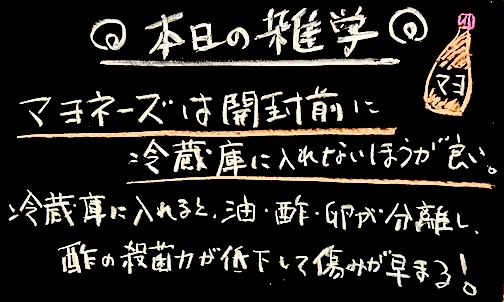 本日の雑学
マヨ
マヨネーズは開封前に
冷蔵庫に入れないほうが良い。
冷蔵庫に入れると、油・酢・卵が分離し、
酢の殺菌力が低下して傷みが早まる!